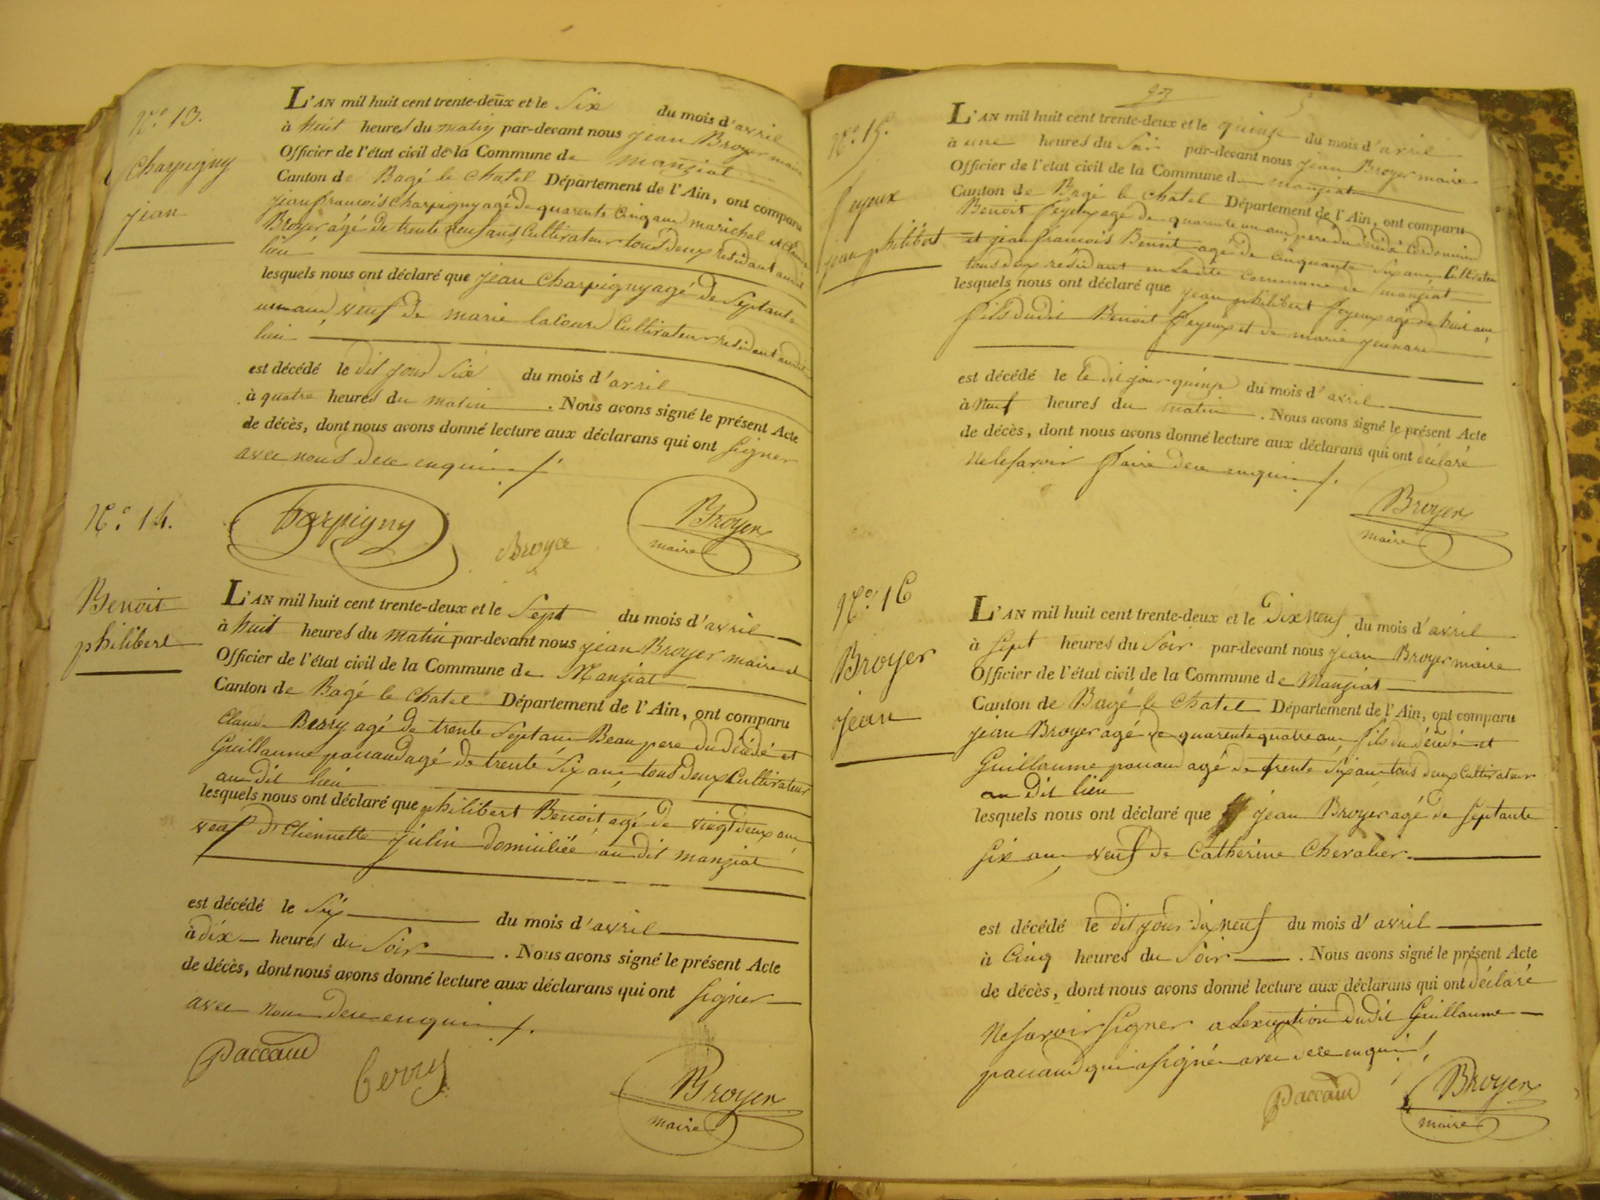 N.o 13.
Charpigny
jean
L'AN mil huit cent trente-deux et le Six du mois d'avril
à huit heures du matin par-devant nous jean Broyer maire
Officier de l'état civil de la Commune de manziat
Canton de Bagé le chatel Département de l'Ain, ont comparu
jean francois Charpigny agé de quarente Cinq ans marichal et
Broyer âgé de trente neuf ans Cultivateur tous deux residant audit
lieu
lesquels nous ont déclaré que jean Charpigny agé de Septante
un ans, veuf de marie lacour Cultivateur residant audit
lieu
est décédé le dit jour Six du mois d'avril
à quatre heures du matin. Nous avons signé le présent Acte
de décès, dont nous avons donné lecture aux déclarans qui ont Signer
avec nous de ce enquis ./.
Charpigny
Broyer
Broyer
maire
N.o 14.
Benoit
philibert
L'AN mil huit cent trente-deux et le Sept du mois d'avril
à huit heures du matin par-devant nous jean Broyer maire et
Officier de l'état civil de la Commune de Manziat
Canton de Bagé le chatel Département de l'Ain, ont comparu
Claude Berry agé de trente Sept ans Beau pere du Décédé et
Guillaume paccaud agé de trente Six ans, tous deux Cultivateur
au dit lieu
lesquels nous ont déclaré que philibert Benoit agé de vingt deux ans
veuf D'Etiennette julin domiciliée au dit manziat
est décédé le Six du mois d'avril
à dix heures du Soir. Nous avons signé le présent Acte
de décès, dont nous avons donné lecture aux déclarans qui ont Signer
avec nous de ce enquis ./.
Paccaud
berry
Broyer
maire
N.o 15.
feyeux
jean philibert
L'AN mil huit cent trente-deux et le quinze du mois d'avril
à une heures du Soir par-devant nous jean Broyer maire
Officier de l'état civil de la Commune d manziat
Canton de Bagé le chatel Département de l'Ain, ont comparu
Benoit feyeux agé de quarente un ans pere du décédé
et jean francois Benoit agé de Cinquante Six ans Cultivateur
tous deux résidant en Ladite Commune de manziat
lesquels nous ont déclaré que jean philibert feyeux agé de huit ans
fils dudit Benoit feyeux et de marie
est décédé le Le dit jour quinze du mois d'avril
à Neuf heures du matin. Nous avons signé le présent Acte
de décès, dont nous avons donné lecture aux déclarans qui ont déclaré
Ne le Savoir faire de ce enquis ./.
Broyer
maire
N.o 16
Broyer
jean
L'AN mil huit cent trente-deux et le Dix Neuf du mois d'avril
à Sept heures du Soir par-devant nous jean Broyer maire
Officier de l'état civil de la Commune de Manziat
Canton de Bagé le Chatel Département de l'Ain, ont comparu
jean Broyer agé de quarente quatre ans fils du décédé et
Guillaume paccaud agé de trente Six ans tous deux Cultivateur
au Dit lieu
lesquels nous ont déclaré que jean Broyer agé de Septante
Six ans, veuf de Catherine Chevalier.
est décédé le dit jour dix neuf du mois d'avril
à Cinq heures du Soir. Nous avons signé le présent Acte
de décès, dont nous avons donné lecture aux déclarans qui ont déclaré
Ne Savoir Signer a Lexception dudit Guillaume
paccaud qui a Signé avec de ce enquis ./.
Paccaud
Broyer
maire